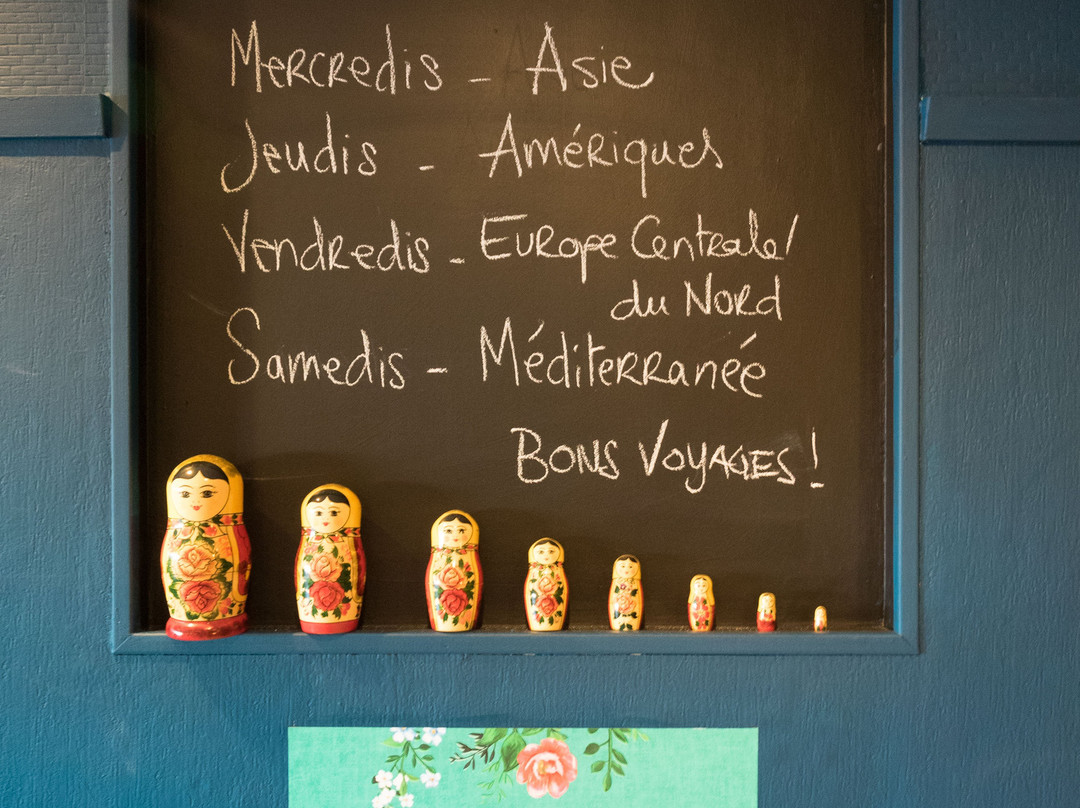 Mercredis - Asie
Jeudis - Amériques
Vendredis - Europe Centrale/
du Nord
Samedis - Méditerranée
Bons Voyages !